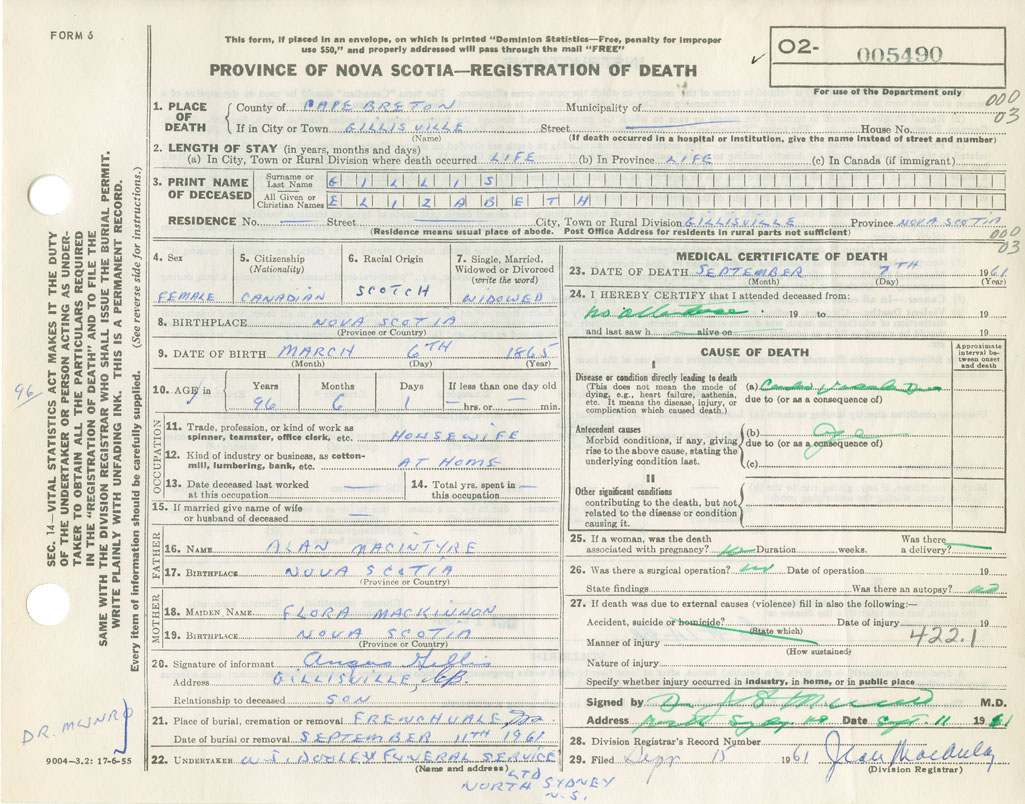 FORM 6
This form, if placed in an envelope, on which is printed "Dominion Statistics—Free, penalty for improper
use $50," and properly addressed will pass through the mail "FREE"
PROVINCE OF NOVA SCOTIA—REGISTRATION OF DEATH
02- 005490
For use of the Department only
000
03
1. PLACE OF DEATH
County of CAPE BRETON Municipality of
If in City or Town GILLISVILLE Street House No.
(Name) (If death occurred in a hospital or institution, give the name instead of street and number)
2. LENGTH OF STAY (in years, months and days)
(a) In City, Town or Rural Division where death occurred LIFE (b) In Province LIFE (c) In Canada (if immigrant)
3. PRINT NAME OF DECEASED
Surname or Last Name GILLIS
All Given or Christian Names ELIZABETH
RESIDENCE No. Street City, Town or Rural Division GILLISVILLE Province NOVA SCOTIA
(Residence means usual place of abode. Post Office Address for residents in rural parts not sufficient)
000
03
4. Sex FEMALE
5. Citizenship (Nationality) CANADIAN
6. Racial Origin SCOTCH
7. Single, Married, Widowed or Divorced (write the word) WIDOWED
8. BIRTHPLACE NOVA SCOTIA
(Province or Country)
9. DATE OF BIRTH MARCH 6TH 1865
(Month) (Day) (Year)
10. AGE in Years Months Days If less than one day old
96 6 1 — hrs. or — min.
OCCUPATION
11. Trade, profession, or kind of work as spinner, teamster, office clerk, etc. HOUSEWIFE
12. Kind of industry or business, as cotton-mill, lumbering, bank, etc. AT HOME
13. Date deceased last worked at this occupation —
14. Total yrs. spent in this occupation —
15. If married give name of wife or husband of deceased —
FATHER
16. NAME ALAN MACINTYRE
17. BIRTHPLACE NOVA SCOTIA
(Province or Country)
MOTHER
18. MAIDEN NAME FLORA MACKINNON
19. BIRTHPLACE NOVA SCOTIA
(Province or Country)
20. Signature of informant Angus Gillis
Address GILLISVILLE, C.B.
Relationship to deceased SON
21. Place of burial, cremation or removal FRENCHVALE
Date of burial or removal SEPTEMBER 11TH 1961
22. UNDERTAKER W.S. DOOLEY FUNERAL SERVICE LTD
(Name and address)
NORTH SYDNEY
N.S.
MEDICAL CERTIFICATE OF DEATH
23. DATE OF DEATH SEPTEMBER 7TH 1961
(Month) (Day) (Year)
24. I HEREBY CERTIFY that I attended deceased from:
no attendance 19 to 19
and last saw h alive on 19
CAUSE OF DEATH
Approximate interval between onset and death
I
Disease or condition directly leading to death
(This does not mean the mode of dying, e.g., heart failure, asthenia, etc. It means the disease, injury, or complication which caused death.)
(a)
due to (or as a consequence of)
Antecedent causes
Morbid conditions, if any, giving rise to the above cause, stating the underlying condition last.
(b)
due to (or as a consequence of)
(c)
II
Other significant conditions
contributing to the death, but not related to the disease or condition causing it.
25. If a woman, was the death associated with pregnancy? no Duration weeks. Was there a delivery?
26. Was there a surgical operation? no Date of operation 19
State findings Was there an autopsy? no
27. If death was due to external causes (violence) fill in also the following:—
Accident, suicide or homicide? Date of injury 19
(State which)
Manner of injury 422.1
(How sustained)
Nature of injury
Specify whether injury occurred in industry, in home, or in public place
Signed by M.D.
Address North Sydney NS Date Sept. 11 1961
28. Division Registrar's Record Number
29. Filed Sept 15 1961 Jean MacAulay
(Division Registrar)
SEC. 14—VITAL STATISTICS ACT MAKES IT THE DUTY
OF THE UNDERTAKER OR PERSON ACTING AS UNDER-
TAKER TO OBTAIN ALL THE PARTICULARS REQUIRED
IN THE "REGISTRATION OF DEATH" AND TO FILE THE
SAME WITH THE DIVISION REGISTRAR WHO SHALL ISSUE THE BURIAL PERMIT.
WRITE PLAINLY WITH UNFADING INK. THIS IS A PERMANENT RECORD.
Every item of information should be carefully supplied. (See reverse side for instructions.)
96
DR. MUNRO
9004—3.2: 17-6-55